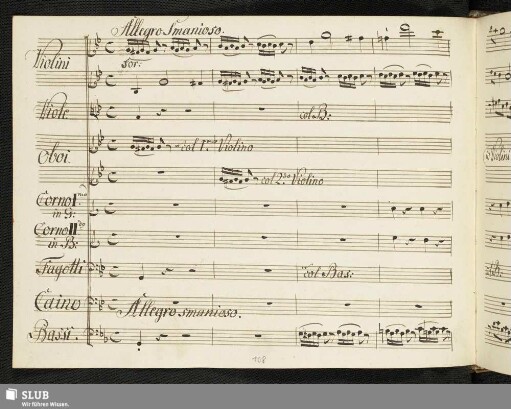 Allegro Smanioso.
Violini
For:
Viole
col B:
Oboi
col 1.mo Violino
col 2.do Violino
Corno I.mo
in G:
Corno II.do
in B:
Fagotti
col Bas:
Caino
Allegro smanioso.
Bassi.
108
SLUB
Wir führen Wissen.